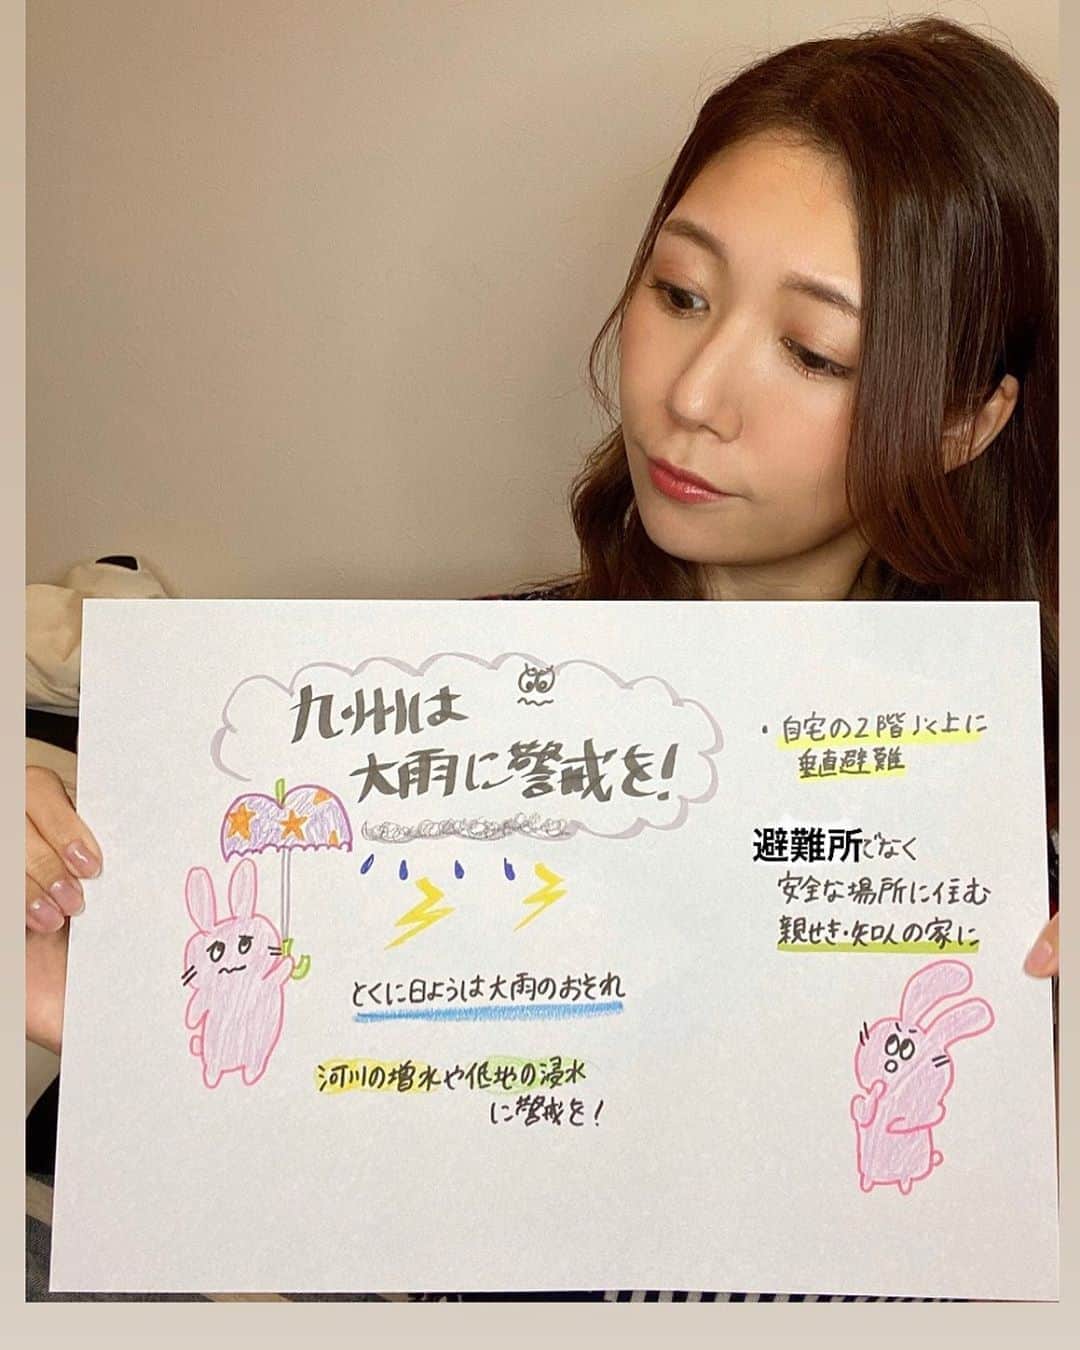 九州は
大雨に警戒を!
とくに日ようは大雨のおそれ
河川の増水や低地の浸水
に警戒を!
・自宅の2階以上に
垂直避難
避難所でなく
安全な場所に住む
親せき・知人の家に